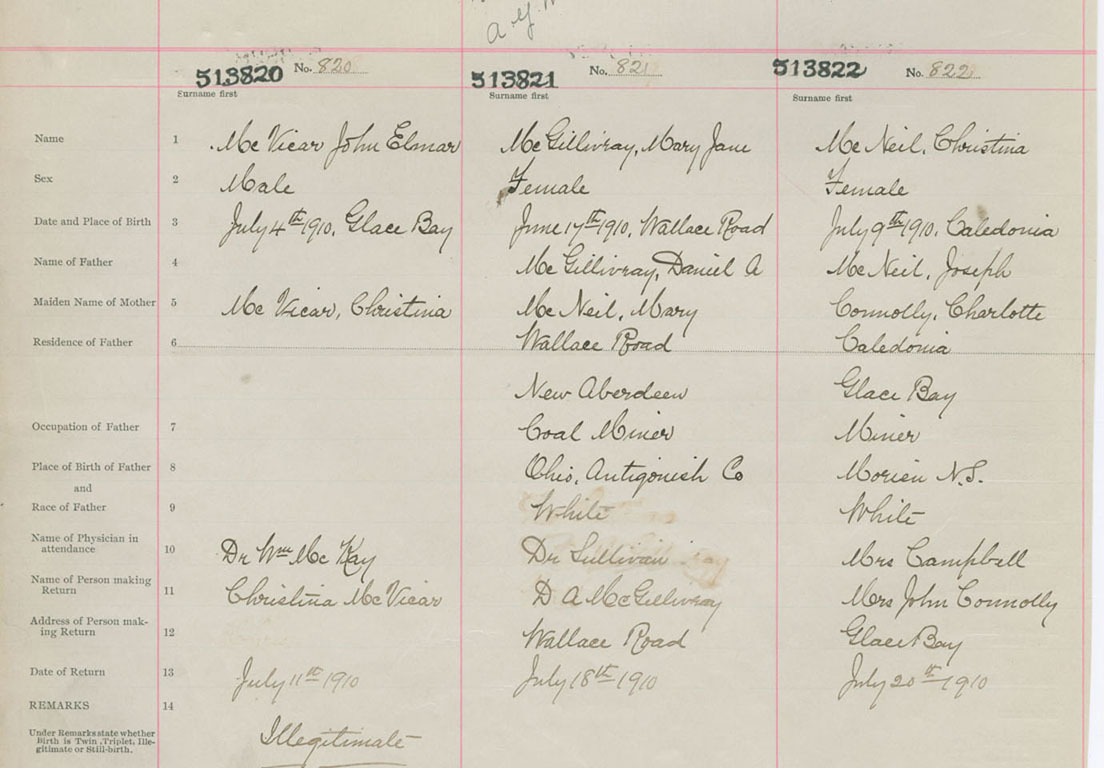 A. Y.
513820 No. 820 513821 No. 821 513822 No. 822
Surname first Surname first Surname first
Name 1 Mc Vicar John Elmar McGillivray, Mary Jane McNeil, Christina
Sex 2 Male Female Female
Date and Place of Birth 3 July 4th 1910, Glace Bay June 17th 1910, Wallace Road July 9th 1910, Caledonia
Name of Father 4 McGillivray, Daniel A McNeil, Joseph
Maiden Name of Mother 5 Mc Vicar, Christina McNeil, Mary Connolly, Charlotte
Residence of Father 6 Wallace Road Caledonia
New Aberdeen Glace Bay
Occupation of Father 7 Coal Miner Miner
Place of Birth of Father 8 Ohio, Antigonish Co Morien N.S.
and
Race of Father 9 White White
Name of Physician in
attendance 10 Dr Wm McKay Dr Sullivan Mrs Campbell
Name of Person making
Return 11 Christina McVicar D A McGillivray Mrs John Connolly
Address of Person mak-
ing Return 12 Wallace Road Glace Bay
Date of Return 13 July 11th 1910 July 18th 1910 July 20th 1910
REMARKS 14
Under Remarks state whether
Birth is Twin, Triplet, Ille-
gitimate or Still-birth.
Illegitimate